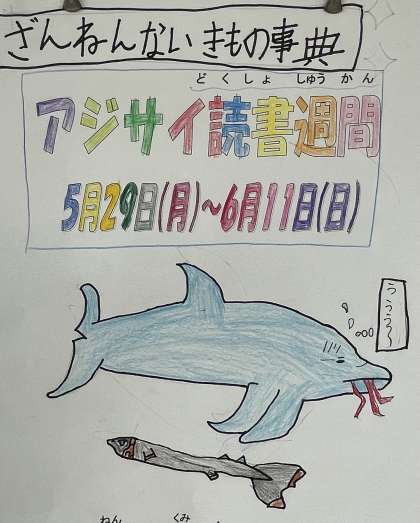 ざんねんないきもの事典
どくしょ しゅうかん
アジサイ読書週間
5月29日(月)~6月11日(日)
うううう〜
ねん くみ